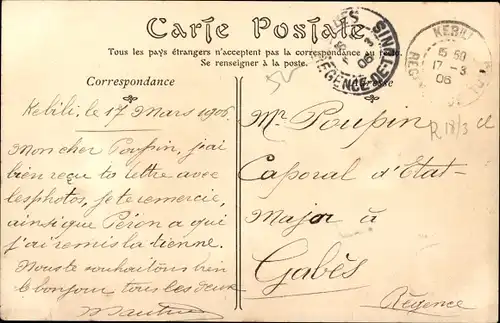 Carte Postale
Tous les pays étrangers n'acceptent pas la correspondance au recto.
Se renseigner à la poste.
Correspondance
Adresse
KEBILI
15 50
17 - 3
06
R 18/3
Kebili, le 17 Mars 1906.
Mon cher Poupin, j'ai
bien reçu ta lettre avec
les photos, je te remercie,
ainsi que Péron a qui
j'ai remis la tienne.
Nous te souhaitons bien
le bonjour tous les deux
Mr Poupin
Caporal d'Etat-
Major à
Gabès
Régence